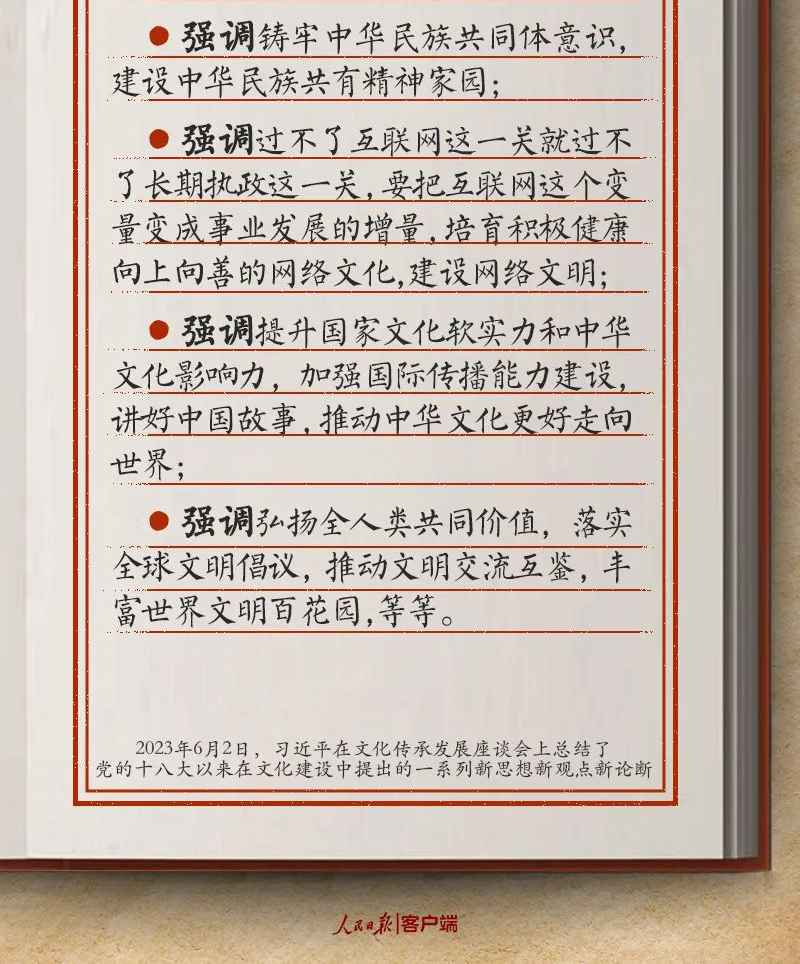 ● 强调铸牢中华民族共同体意识，
建设中华民族共有精神家园；
● 强调过不了互联网这一关就过不
了长期执政这一关，要把互联网这个变
量变成事业发展的增量，培育积极健康
向上向善的网络文化，建设网络文明；
● 强调提升国家文化软实力和中华
文化影响力，加强国际传播能力建设，
讲好中国故事，推动中华文化更好走向
世界；
● 强调弘扬全人类共同价值，落实
全球文明倡议，推动文明交流互鉴，丰
富世界文明百花园，等等。
2023年6月2日，习近平在文化传承发展座谈会上总结了
党的十八大以来在文化建设中提出的一系列新思想新观点新论断
人民日报|客户端